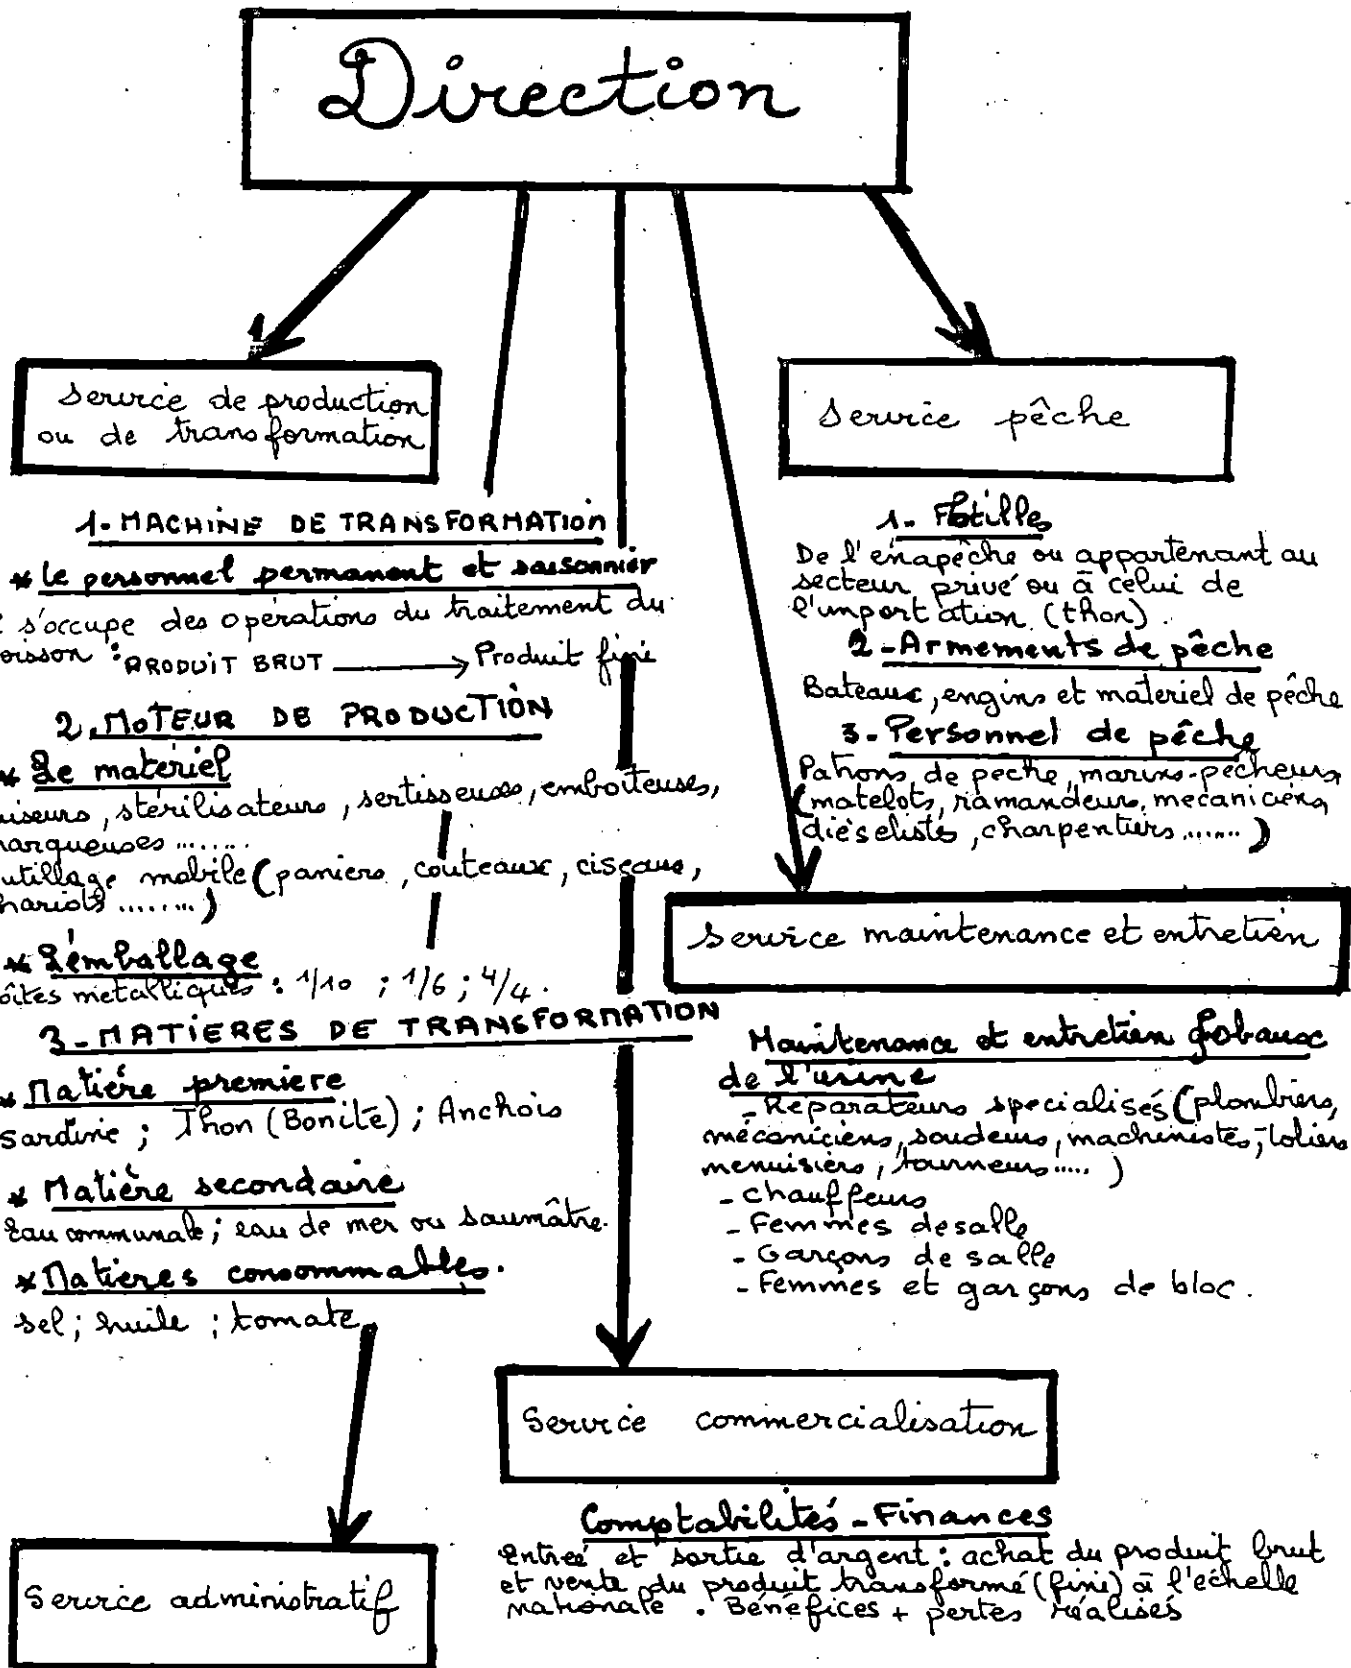 Direction
Service de production
ou de transformation
1- MACHINE DE TRANSFORMATION
* Le personnel permanent et saisonnier
s'occupe des opérations du traitement du
oisson : PRODUIT BRUT → Produit fini
2. MOTEUR DE PRODUCTION
* Le matériel
uiseurs, stérilisateurs, sertisseuses, emboiteuses,
marqueuses ........
utillage mobile (paniers, couteaux, ciseaux,
hariots ........)
* L'emballage
oîtes metalliques : 1/10 ; 1/6 ; 4/4.
3- MATIERES DE TRANSFORMATION
* Matière premiere
Sardine ; Thon (Bonite) ; Anchois
* Matière secondaire
Eau communale ; eau de mer ou saumâtre.
* Matières consommables.
sel ; huile ; tomate
Service administratif
Service pêche
1- Flotilles
De l'enapêche ou appartenant au
secteur privé ou à celui de
l'importation (thon).
2- Armements de pêche
Bateaux, engins et materiel de pêche
3- Personnel de pêche
Patrons de peche, marins-pecheurs,
(matelots, ramandeurs, mecaniciens,
diéselistes, charpentiers .......)
Service maintenance et entretien
Maintenance et entretien globaux
de l'usine
- Réparateurs specialisés (plombiers,
mécaniciens, soudeurs, machinistes, toliers
menuisiers, tourneurs.....)
- chauffeurs
- Femmes de salle
- Garçons de salle
- Femmes et garçons de bloc.
Service commercialisation
Comptabilités - Finances
Entreé et sortie d'argent : achat du produit brut
et vente du produit transformé (fini) à l'échelle
nationale. Bénéfices + pertes réalisés